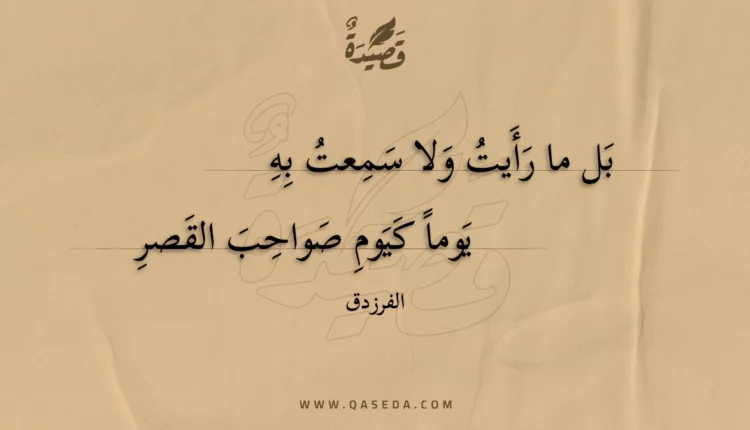 قَصِيدَةٌ
بَل ما رَأَيتُ وَلا سَمِعتُ بِهِ
يَوماً كَيَومِ صَواحِبَ القَصرِ
الفرزدق
WWW.QASEDA.COM